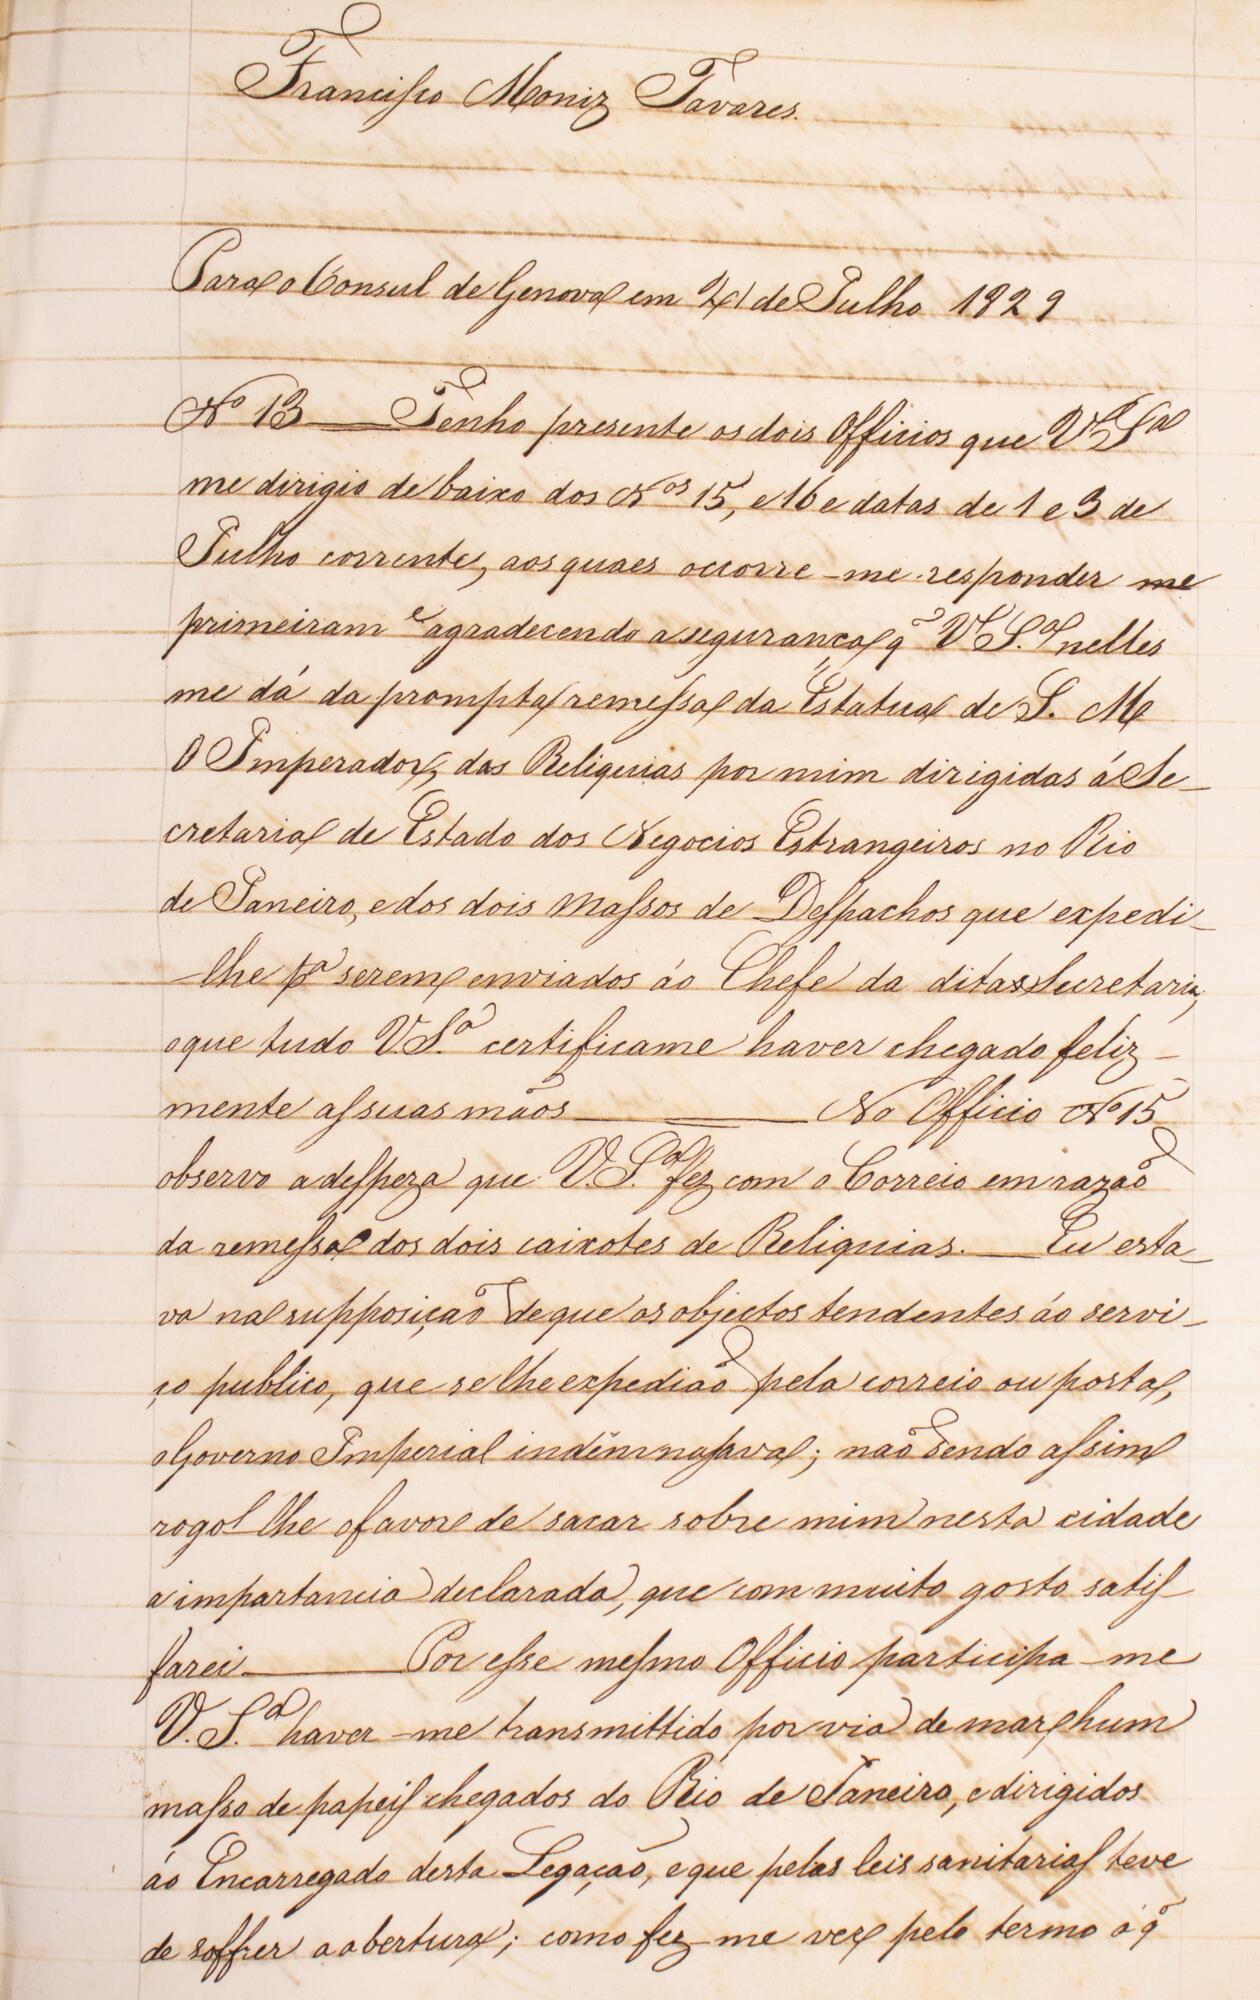 Francisco Moniz Tavares.
Para o Consul de Genova em 24 de Julho 1829
Nº 13 ___ Tenho presente os dois Officios que V. Sª
me dirigio de baixo dos Nos 15, e 16 e datas de 1 e 3 de
Julho corrente, aos quaes occorre-me responder me
primeiramᵉ agradecendo a segurança q̃ V. S.ª nelles
me dá da prompta remessa da Estatua de S. M
O Imperador, das Reliquias por mim dirigidas á Se-
cretaria de Estado dos Negocios Estrangeiros no Rio
de Janeiro, e dos dois massos de Despachos que expedi-
-lhe pª serem enviados áo Chefe da ditas Secretaria,
o que tudo V. S.ª certificame haver chegado feliz-
mente as suas mãos ______ No Officio Nº 15
observo a despeza que V. S.ª fez com o Correio em razaõ
da remessa dos dois caixotes de Reliquias. ___ Eu esta-
va na supposiçaõ de que os objectos tendentes áo servi-
ço publico, que se lhe expediaõ pela correio ou posta,
o Governo Imperial indêmnasava; naõ sendo assim
rogo-lhe o favor de sacar sobre mim nesta cidade
a impartancia declarada, que com muito gosto satis-
farei ______ Por esse mesmo Officio participa-me
V. S.ª haver-me transmittido por via de mar hum
masso de papeis chegados do Rio de Janeiro, e dirigidos
áo Encarregado desta Legaçaõ, e que pelas leis sanitarias teve
de soffrer a abertura; como fez-me ver pelo termo á q̃